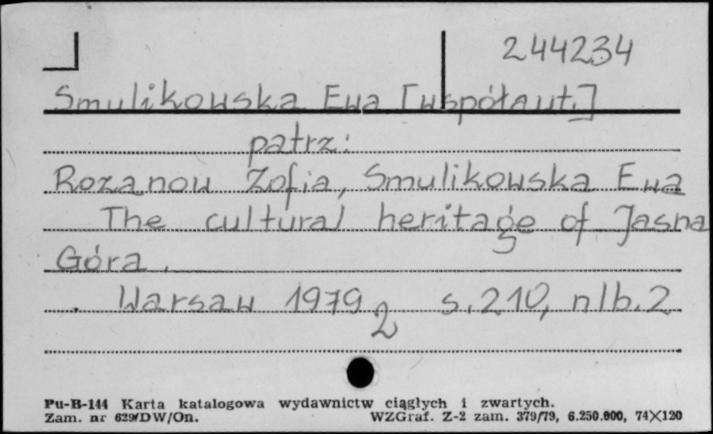 244234
Smulikowska Ewa [współaut.]
patrz:
Rozanow Zofia, Smulikowska Ewa
The cultural heritage of Jasna
Góra.
Warsaw 1979 2 s. 210, nlb. 2
Pu-B-144 Karta katalogowa wydawnictw ciągłych i zwartych.
Zam. nr 629/DW/On. WZGraf. Z-2 zam. 379/79, 6.250.000, 74×120